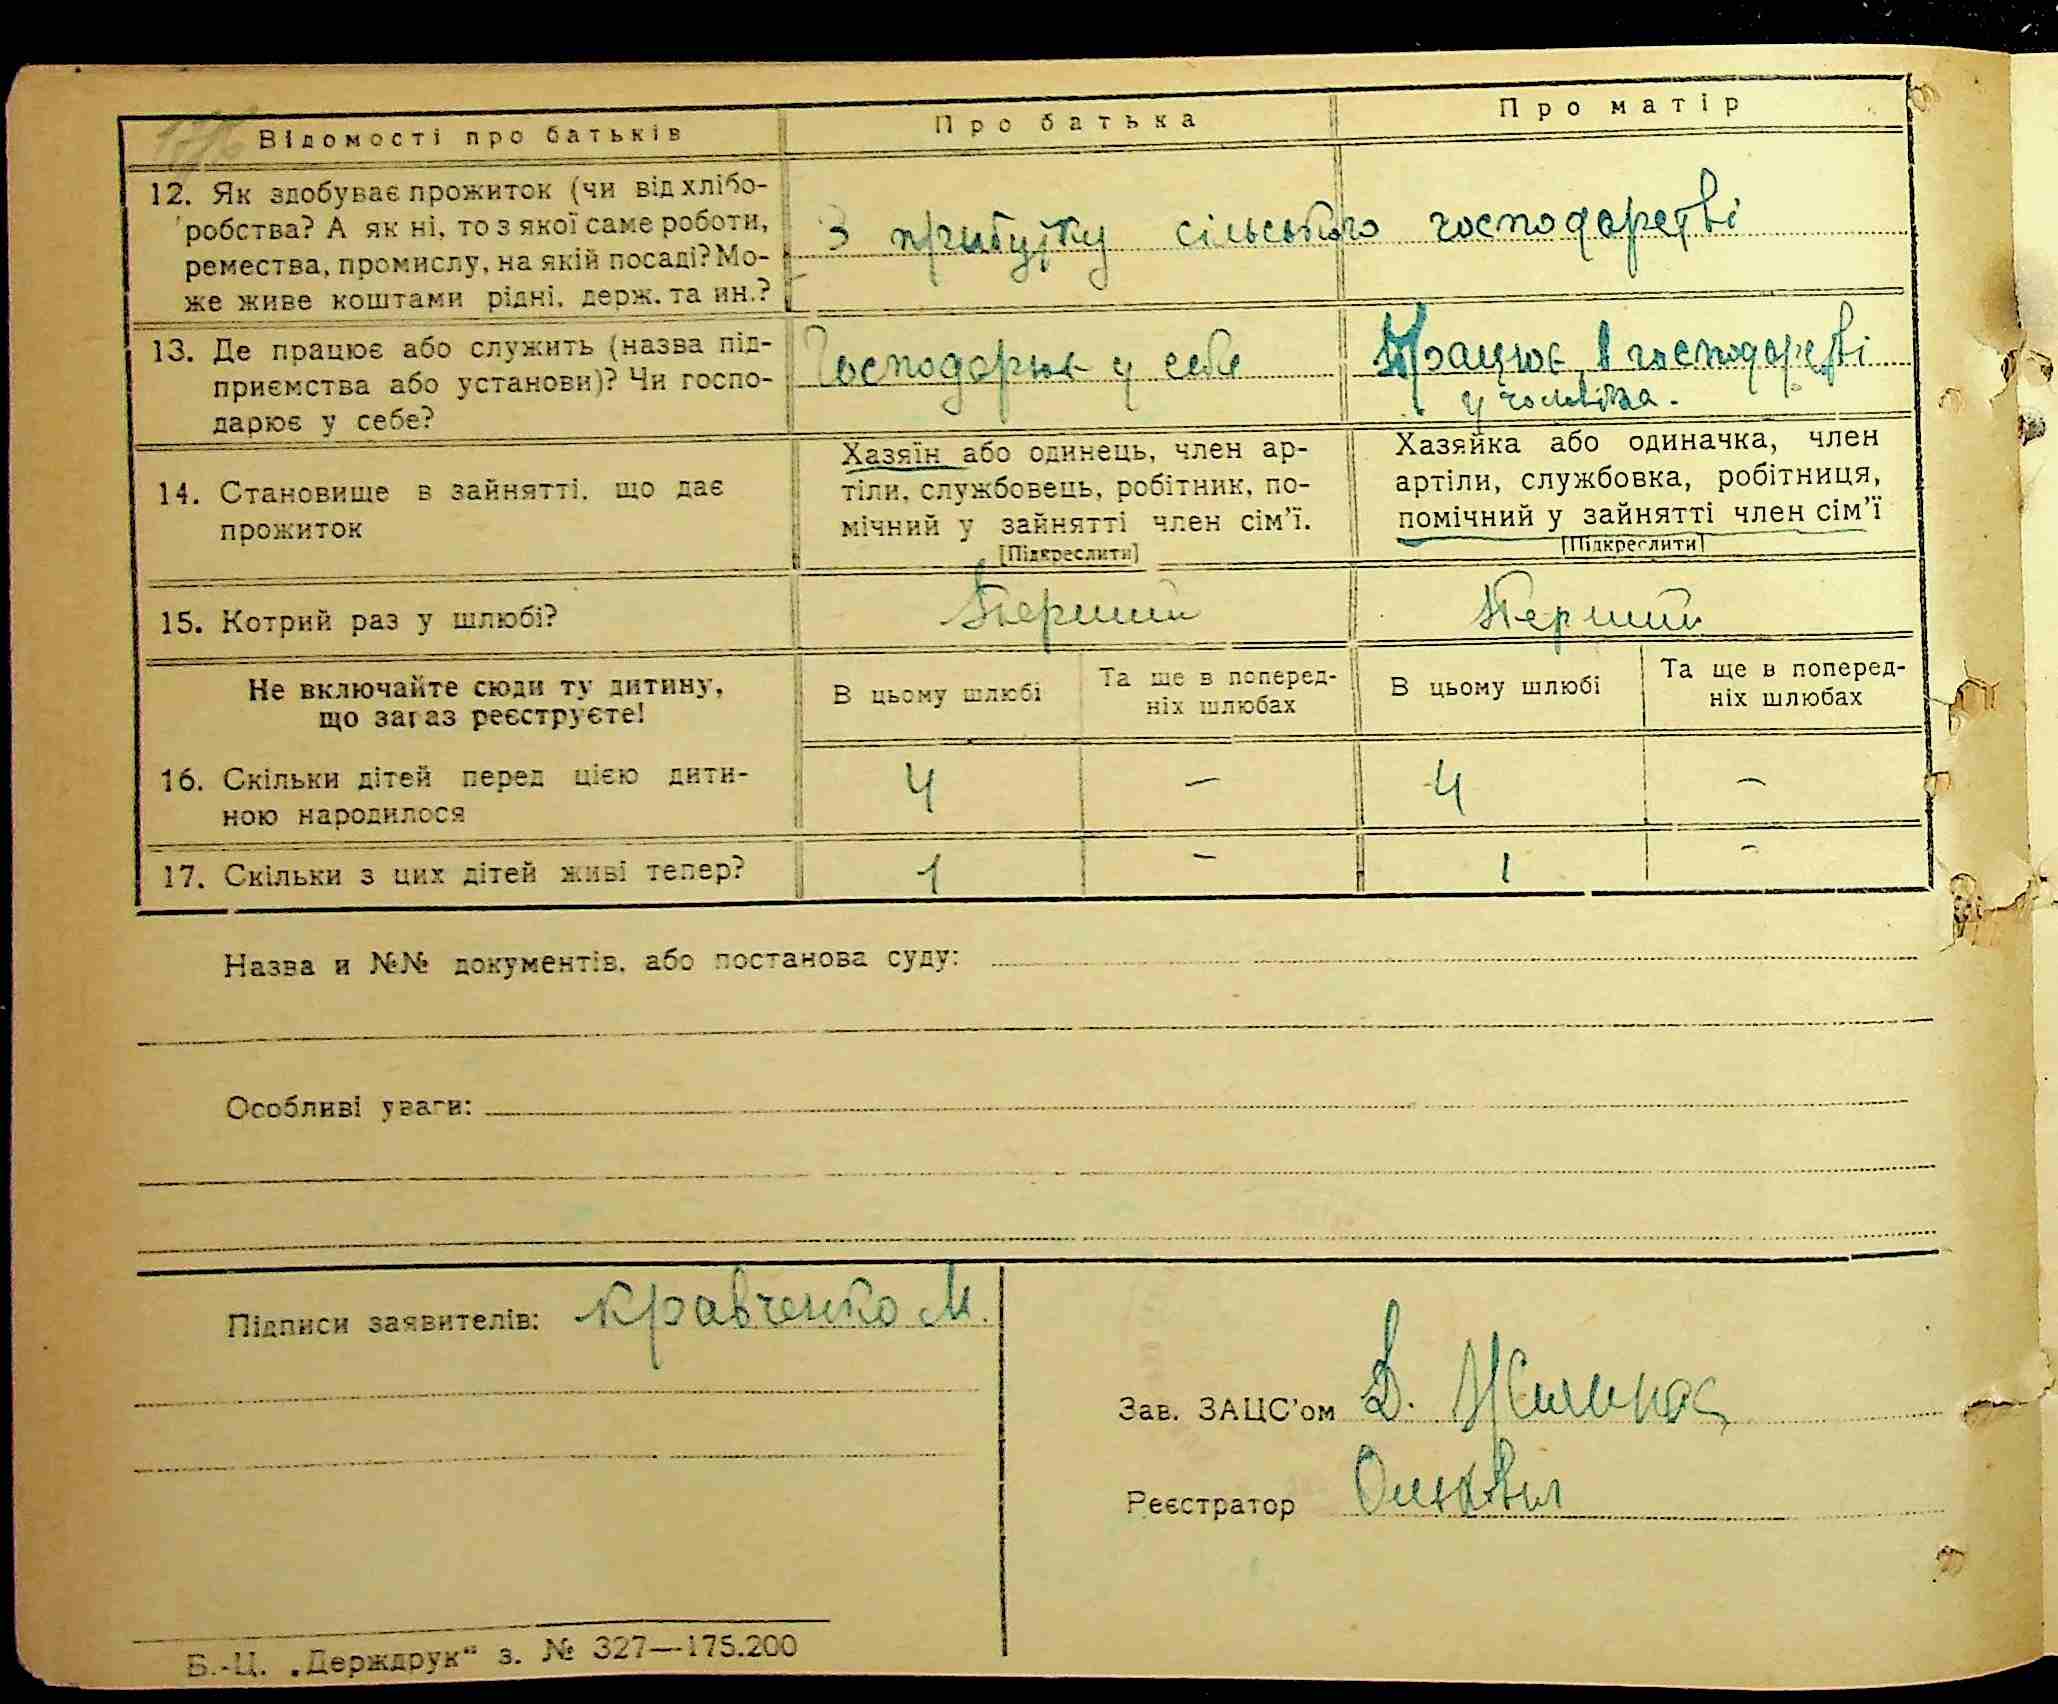 Відомості про батьків
Про батька
Про матір
12. Як здобуває прожиток (чи від хлібо-
робства? А як ні, то з якої саме роботи,
ремества, промислу, на якій посаді? Мо-
же живе коштами рідні, держ. та ин.?
З прибутку сільського господарстві
13. Де працює або служить (назва під-
приємства або установи)? Чи госпо-
дарює у себе?
Господарює у себе
Працює в господарстві
у чоловіка.
14. Становище в зайнятті, що дає
прожиток
Хазяїн або одинець, член ар-
тіли, службовець, робітник, по-
мічний у зайнятті член сім'ї.
[Підкреслити]
Хазяйка або одиначка, член
артіли, службовка, робітниця,
помічний у зайнятті член сім'ї
[Підкреслити]
15. Котрий раз у шлюбі?
Перший
Перший
Не включайте сюди ту дитину,
що зараз реєструєте!
В цьому шлюбі
Та ще в поперед-
ніх шлюбах
В цьому шлюбі
Та ще в поперед-
ніх шлюбах
16. Скільки дітей перед цією дити-
ною народилося
4
–
4
–
17. Скільки з цих дітей живі тепер?
1
–
1
–
Назва и №№ документів, або постанова суду:
Особливі уваги:
Підписи заявителів: Кравченко М.
Зав. ЗАЦС'ом Д.
Реєстратор
Б.-Ц. „Держдрук“ з. № 327—175.200